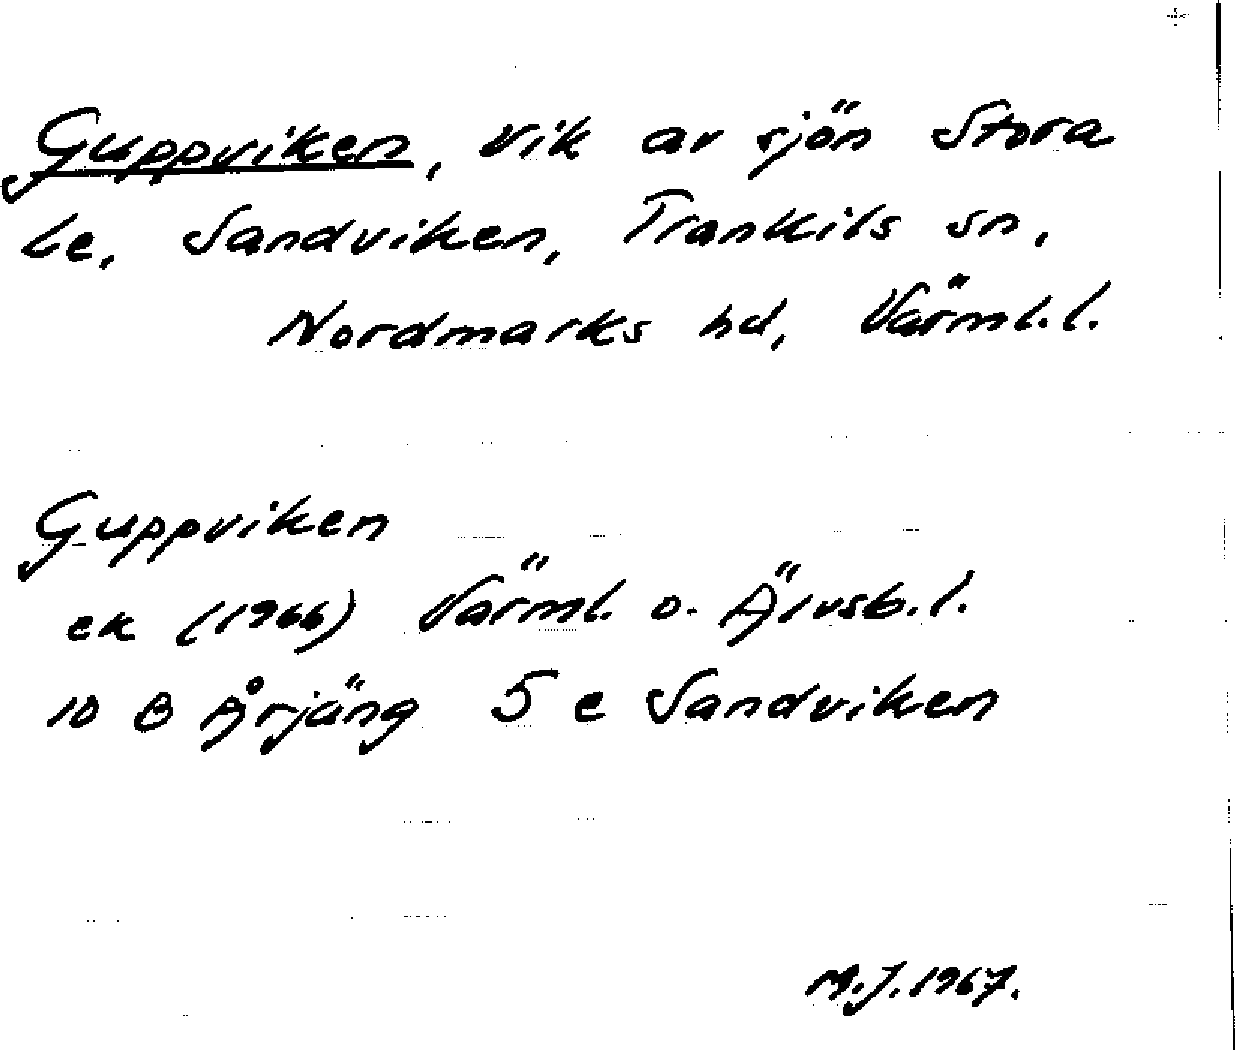 Guppviken, vik av sjön Stora
Le, Sandviken, Trankils sn,
Nordmarks hd, Värml. l.
Guppviken
ek (1966) Värml. o. Älvsb. l.
10 B Årjäng 5 e Sandviken
M.J. 1967.